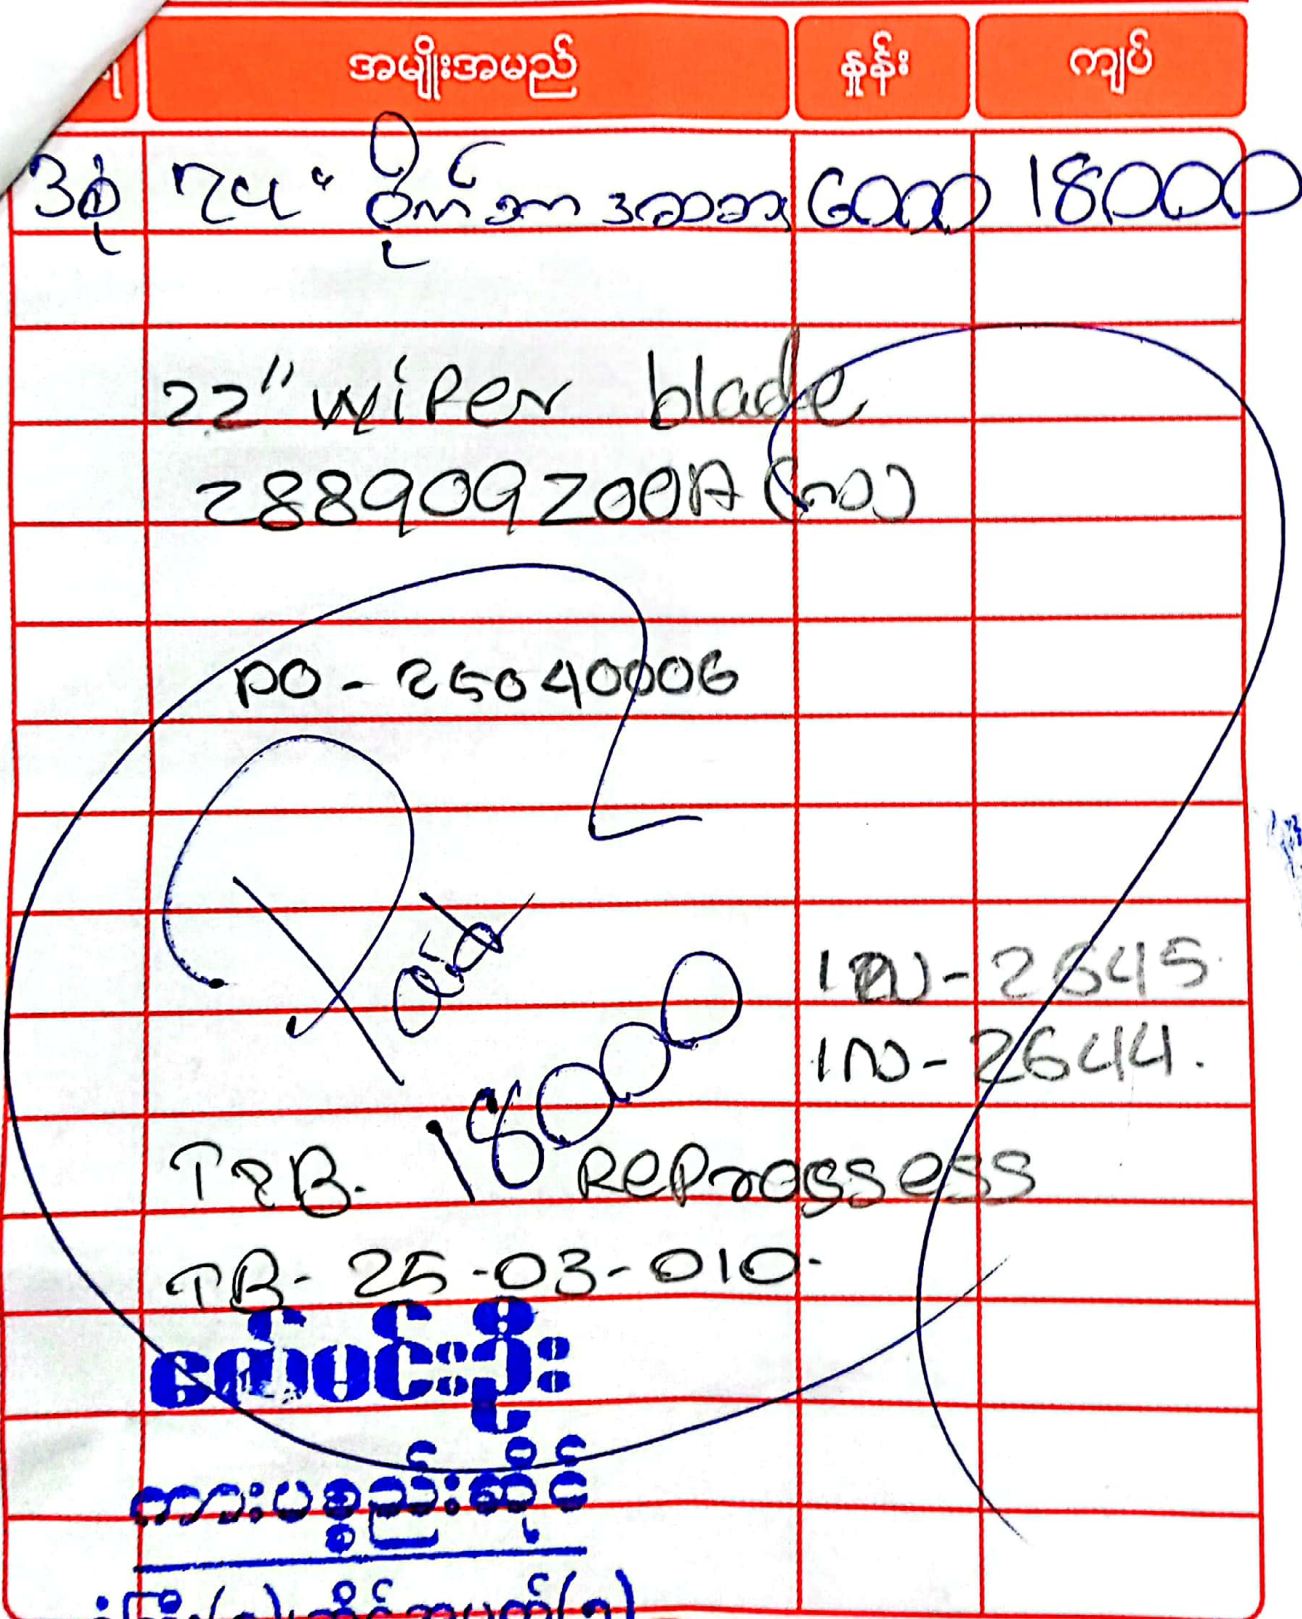 အမျိုးအမည် နှုန်း ကျပ်
3စုံ 6000 18000
22" wiper blade
288909Z00A (လ)
PO - 25040006
Paid
18000
1လ - 2645
1လ - 2644.
T&B. Reprossess
TB - 25 - 03 - 010.
ဇော်မင်းဦး
ကားပစ္စည်းဆိုင်